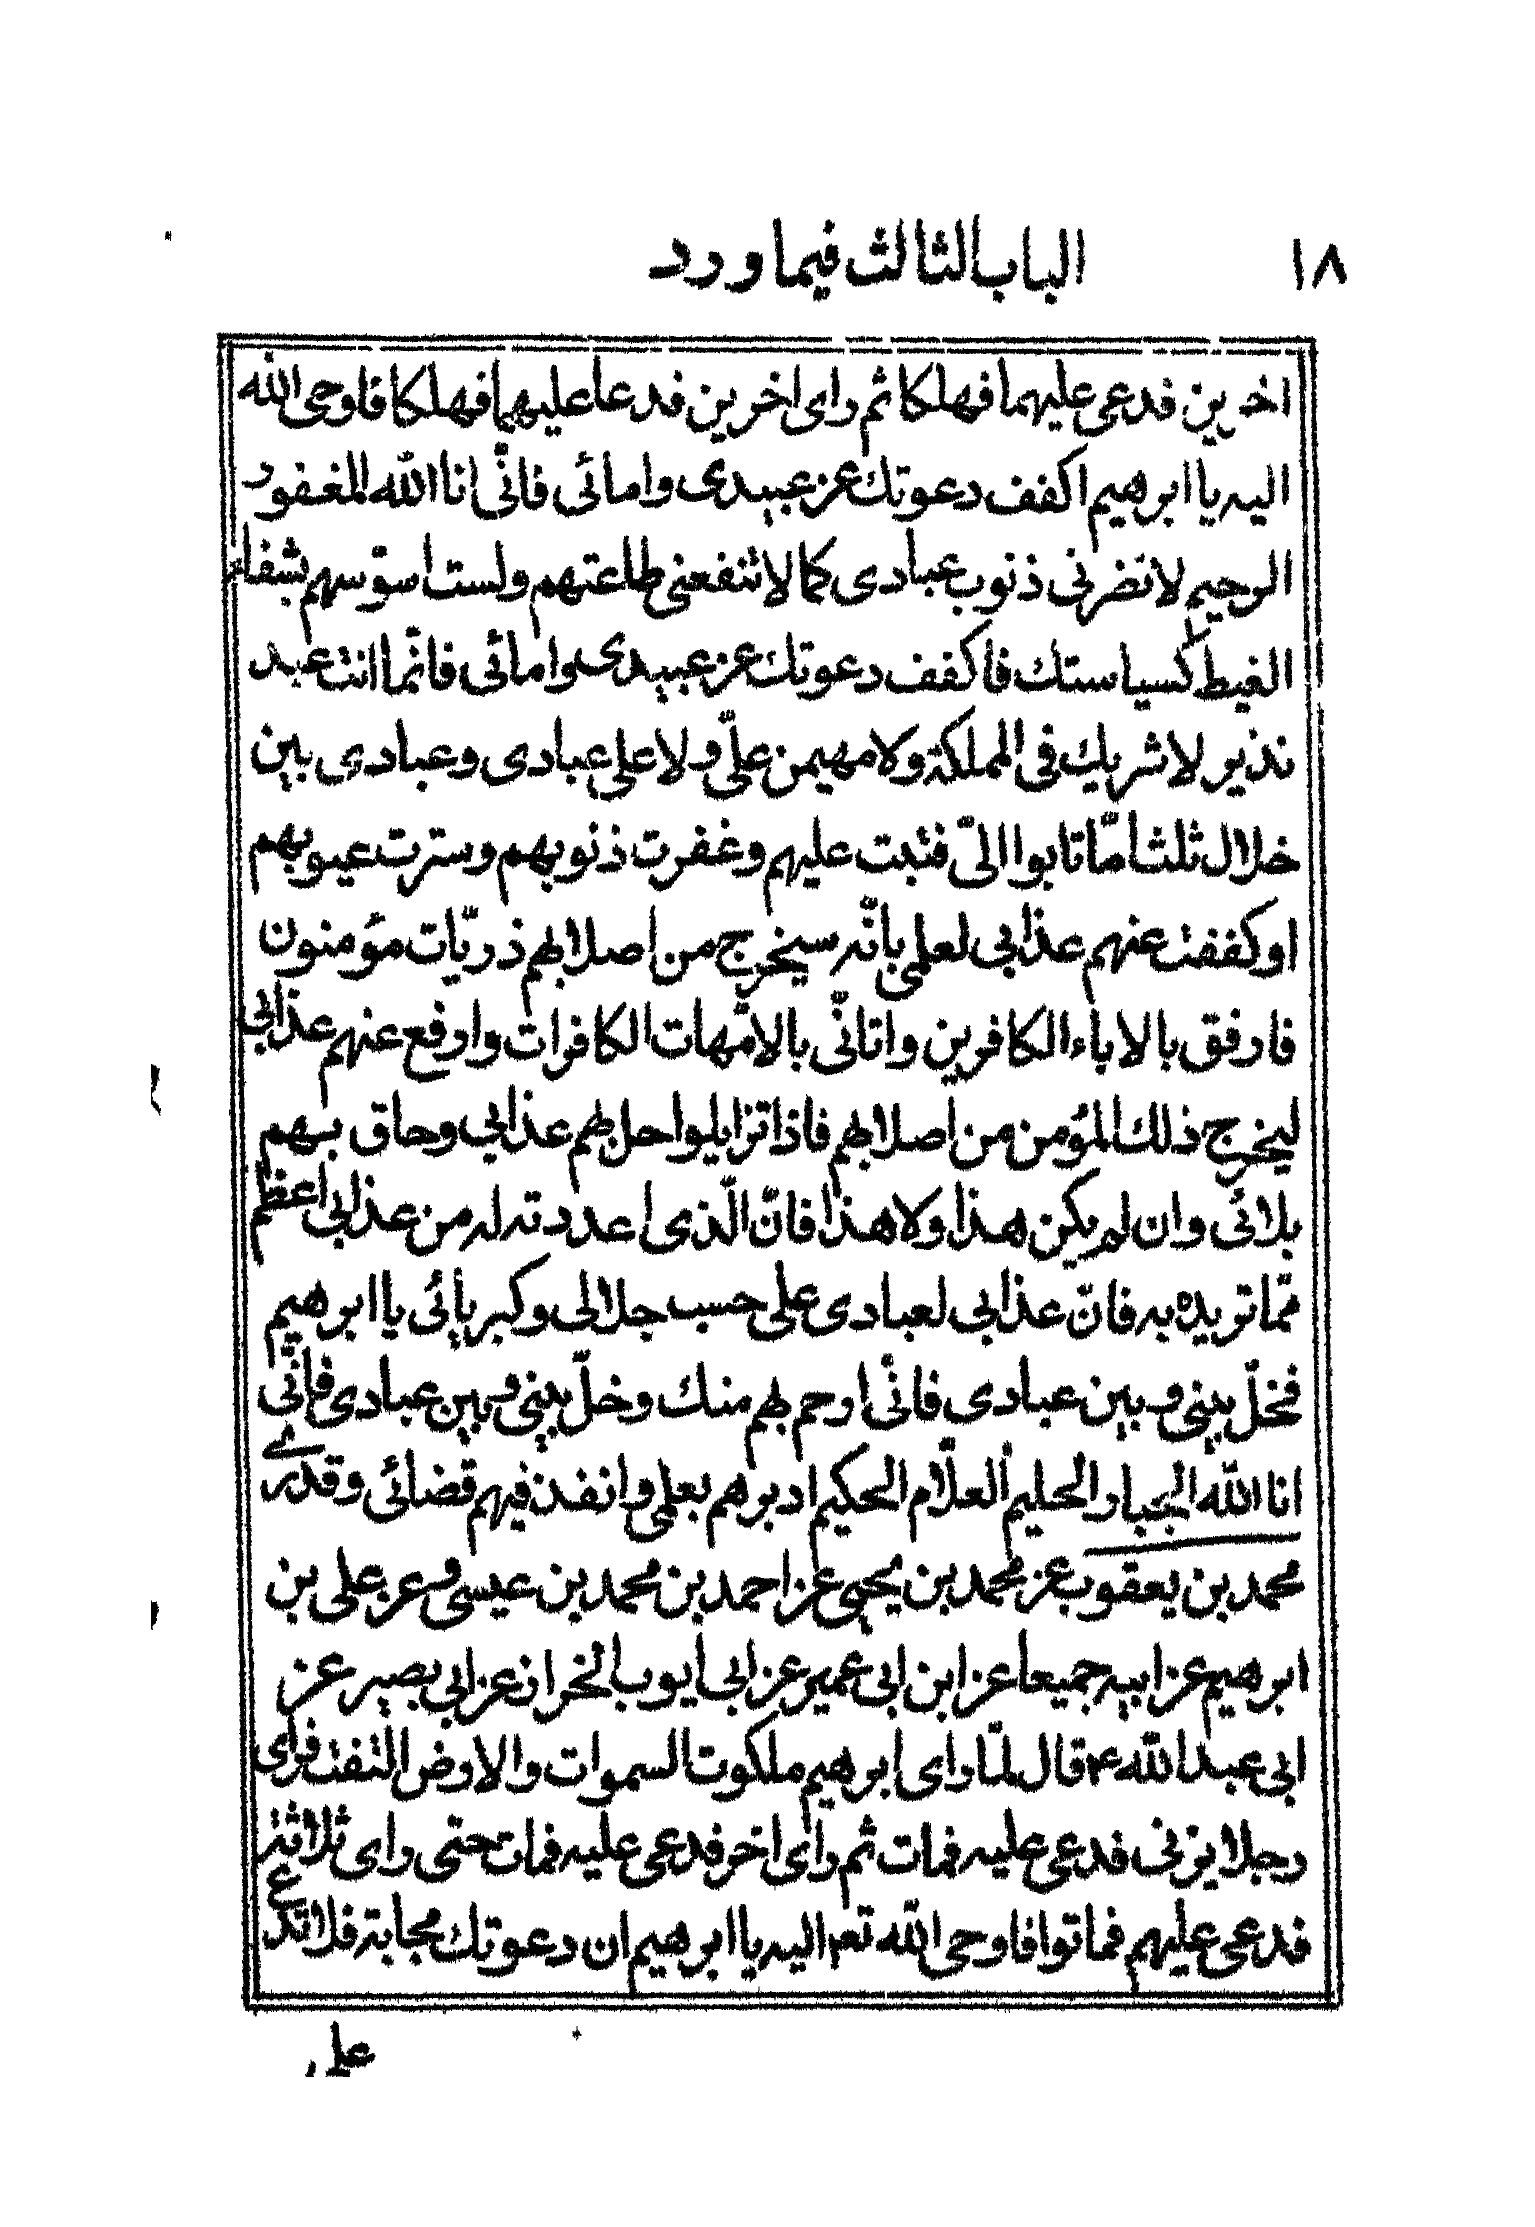 ١٨
الباب الثالث فيما ورد
اخرين فدعى عليهما فهلكا ثم راى اخرين فدعا عليهما فهلكا فاوحى الله
اليه يا ابرهيم اكفف دعوتك عن عبيدى وامائى فانّى انا الله الغفور
الرحيم لا تضرنى ذنوب عبادى كما لا تنفعنى طاعتهم ولست اسوّسهم بشفاء
الغيظ كسياستك فاكفف دعوتك عن عبيدى وامائى فانّما انت عبد
نذير لا شريك فى المملكة ولا مهيمن علىّ ولا على عبادى وعبادى بين
خلال ثلث امّا تابوا الىّ فتبت عليهم وغفرت ذنوبهم وسترت عيوبهم
او كففت عنهم عذابى لعلمى بانّه سيخرج من اصلابهم ذريّات مؤمنون
فارفق بالاباء الكافرين واتانّى بالامّهات الكافرات وارفع عنهم عذابى
ليخرج ذلك المؤمن من اصلابهم فاذا تزايلوا حل بهم عذابى وحاق بهم
بلائى وان لم يكن هذا ولا هذا فانّ الّذى اعددته له من عذابى اعظم
ممّا تريده به فانّ عذابى لعبادى على حسب جلالى وكبريائى يا ابرهيم
فخلّ بينى وبين عبادى فانّى ارحم بهم منك وخلّ بينى وبين عبادى فانّى
انا الله الجبار الحليم العلّام الحكيم ادبرهم بعلمى وانفذ فيهم قضائى وقدرى
محمد بن يعقوب عن محمد بن يحيى عن احمد بن محمد بن عيسى وعن على بن
ابرهيم عن ابيه جميعا عن ابن ابى عمير عن ابى ايوب الخزاز عن ابى بصير عن
ابى عبد الله ع قال لمّا راى ابرهيم ملكوت السموات والارض التفت فراى
رجلا يزنى فدعى عليه فمات ثم راى اخر فدعى عليه فمات حتى راى ثلاثة
فدعى عليهم فماتوا فاوحى الله تعه اليه يا ابرهيم ان دعوتك مجابة فلا تدع
على